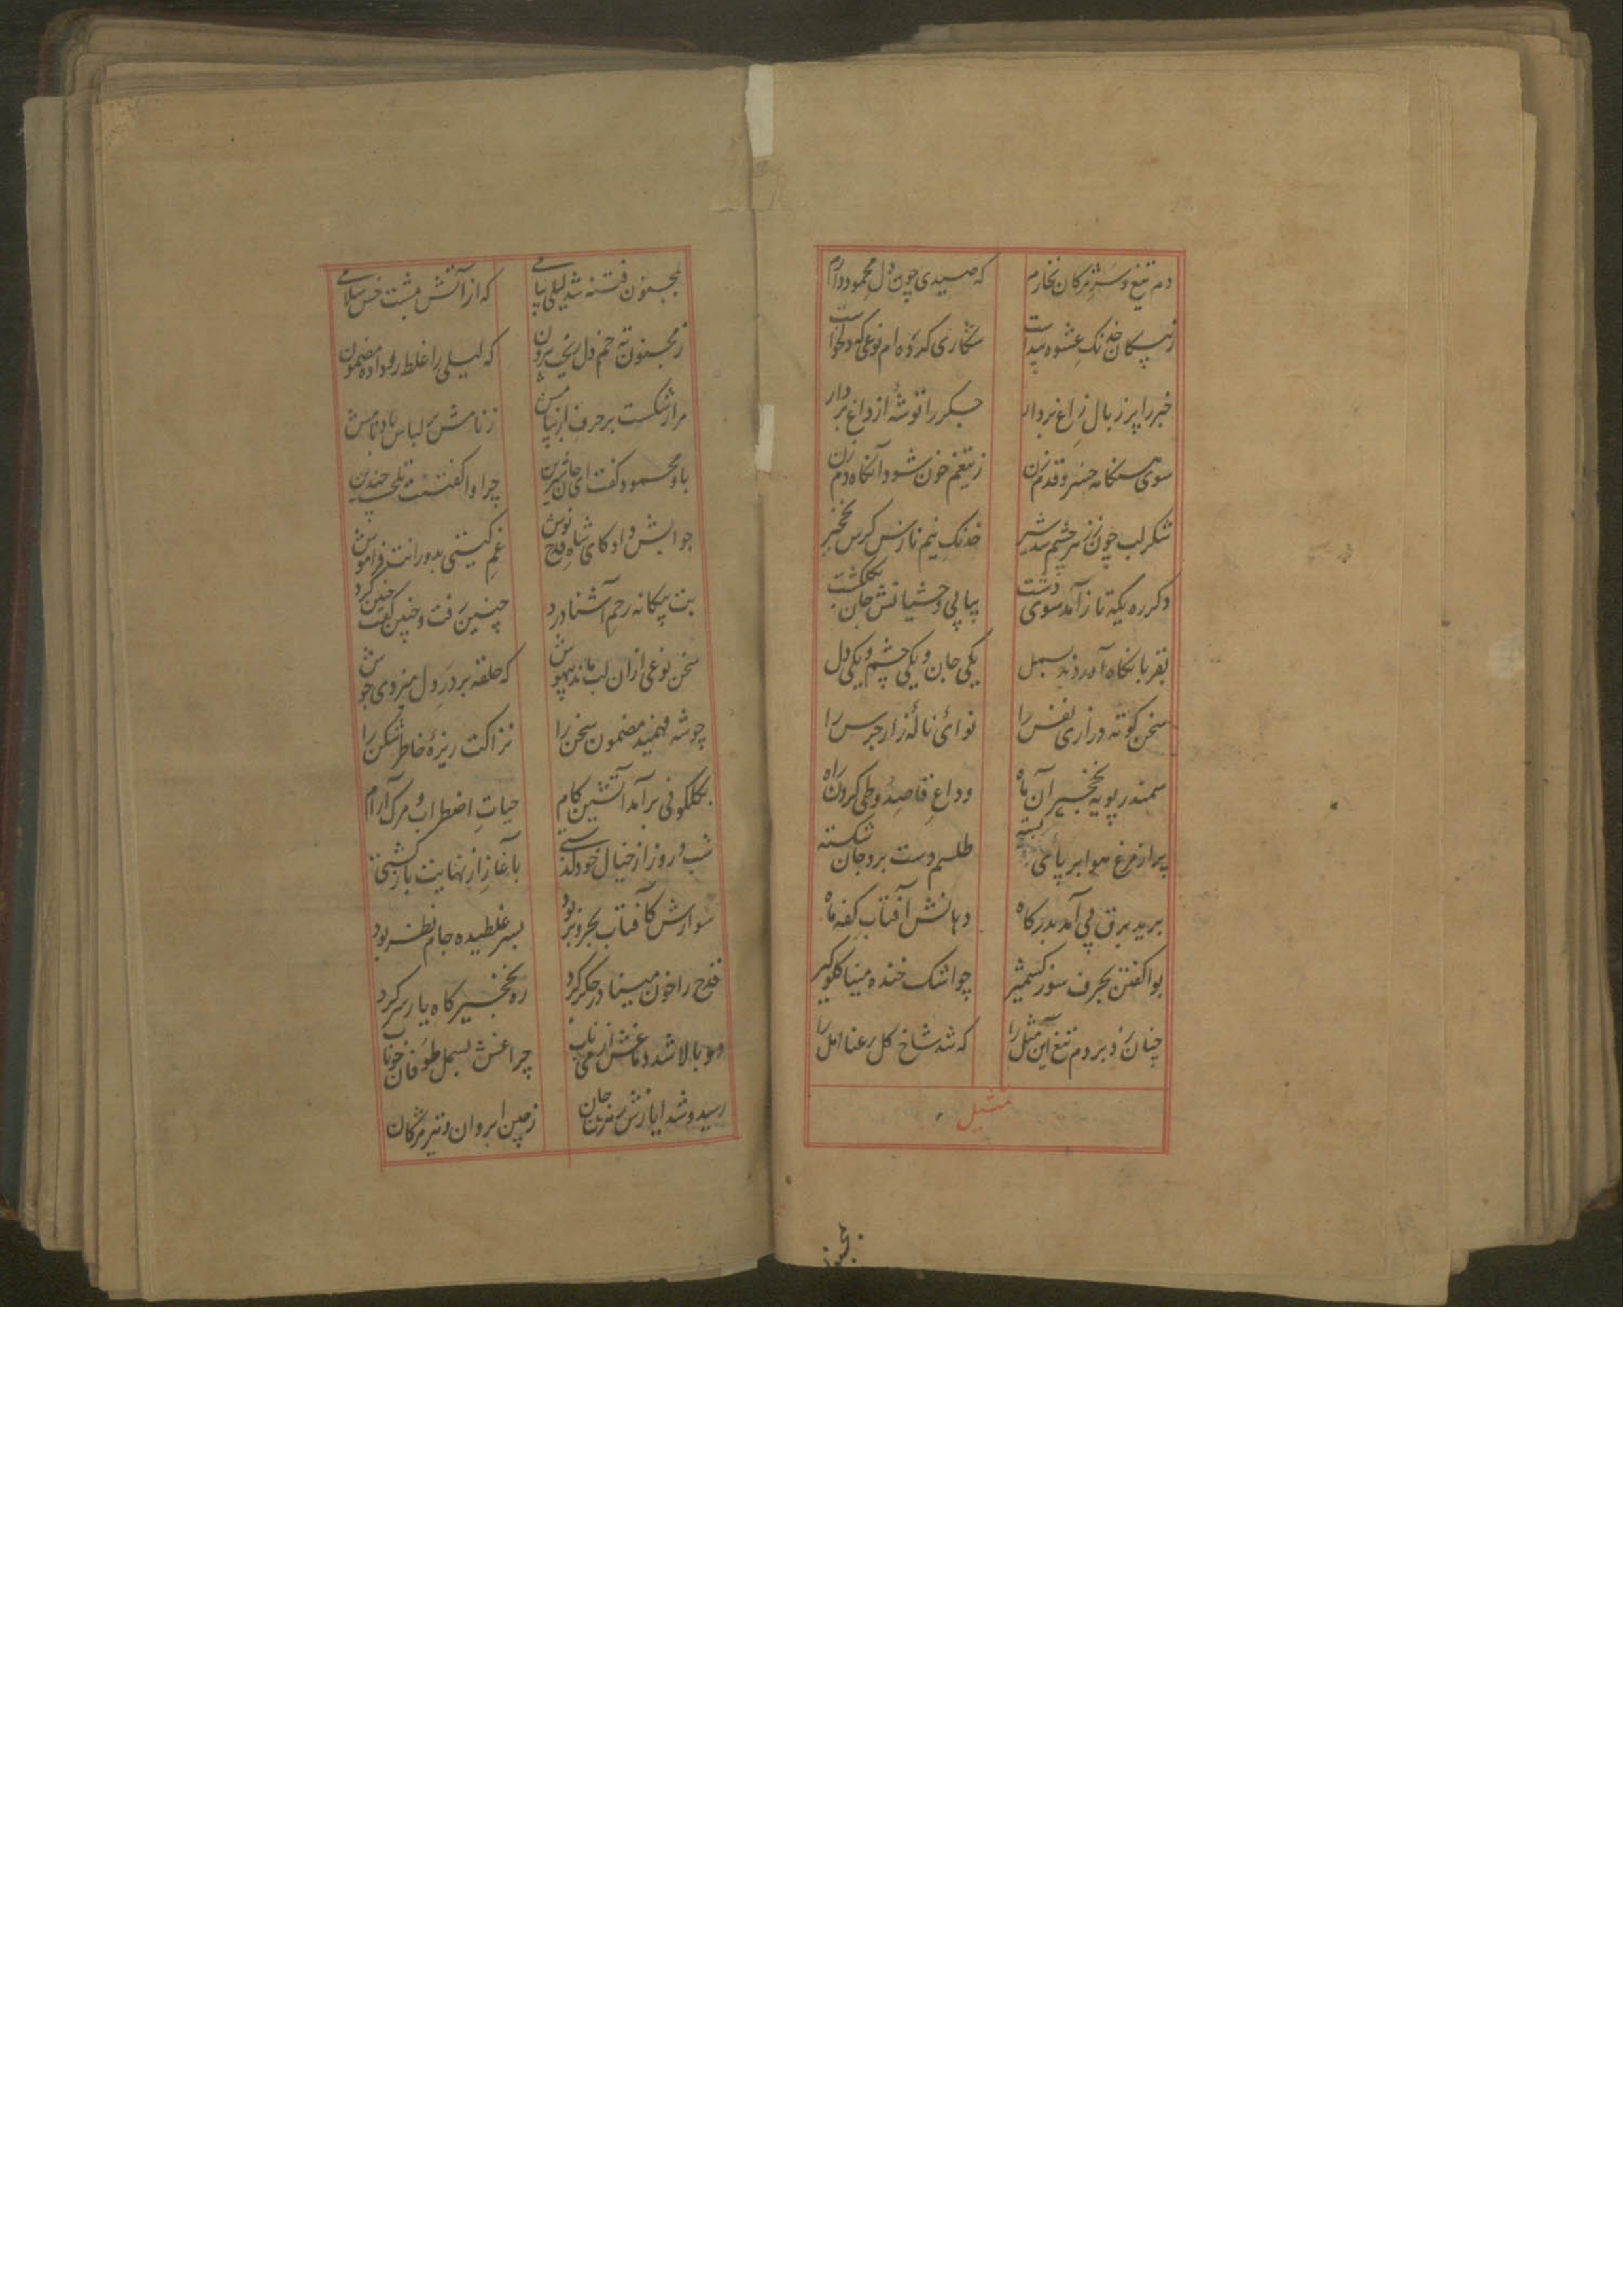 دم تیغ و سر مژکان نخارم که صیدی چون دل محمود دارم
ز پیکان خدنک عشوه پیداست شکاری کرده ام نوعی که دلخواست
خبر را پر ز بال زاغ بردار جکر را توشهٔ از داغ بردار
سوی هنکامه خسرو قدم زن ز تیغم خون شود آنکاه دم زن
شکر لب چون ز سرچشم شد سیر خدنک نیم ناز نرکس نخجیر
دکر ره یکه تاز آمد سوی دشت پیاپی وحشیانش جان بکلکشت
بقربان نکاه آمد بسمل یکی جان و یکی چشم و یکی دل
سخن کوته درازی نفس را نوای نالهٔ زار جرس را
سمندر پویه نخجیر آن ماه وداع قاصد و طی کردن راه
پر از مرغ هوا بر پای بسته طلسم دست برد جان شکسته
برید برق پی آمد بدرکاه دهانش آفتاب کفه ماه
بوا کفتن بحرف سوز کشمیر چو اشک خنده مینا کلوکیر
چنان زد بر دم تیغ این مثل را که شد شاخ کل رعنا امل را
تمثیل
بمجنون فتنه شد لیلی پیامی که از آتش بمشت خس سلامی
ز مجنون ته خم دل بیرون که لیلی را غلط رو داده مضمون
مرا شکست بر حرف از پیامش ز نامش لباس نامش
باو محمود کفت ای جان شیرین چرا واکفتنت تلخست چندین
جوابش داد کای شاه قدح نوش غم کیتی بدورانت فراموش
بت بیکانه رحم آشنا درد چنین رفت و چنین کفت و چنین کرد
سخن نوعی از ان لب ماند بیهوش که حلقه بر در دل میزدی جوش
چو شه فهمید مضمون سخن را نزاکت ریزهٔ خاطر شکن را
بکلکونی برآمد آتشین کام حیات اضطراب و مرک آرام
شب و روز از خیال خود کذشتی بآغاز از نهایت بازکشتی
سوارش کافتاب بحر و بر بود بسر غلطیده جام نظر بود
قدح را خون مینا در جکر کرد ره نخجیرکاه یار سر کرد
دو بالا شد دماغش از می ناب چراغش بسمل طوفان خوناب
رسید و شد ایازش رهزن جان ز چین ابروان و تیر مژکان